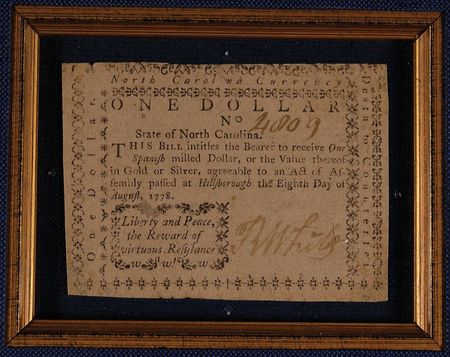 North Carolina Currency.
ONE DOLLAR
No 4809
State of North Carolina.
THIS BILL intitles the Bearer to receive One
Spanish milled Dollar, or the Value thereof
in Gold or Silver, agreeable to an Act of Aſ-
ſembly paſſed at Hillſborough the Eighth Day of
Auguſt, 1778.
Liberty and Peace,
the Reward of
virtuous Reſiſtance
One Dollar.
Death to Counterfeit